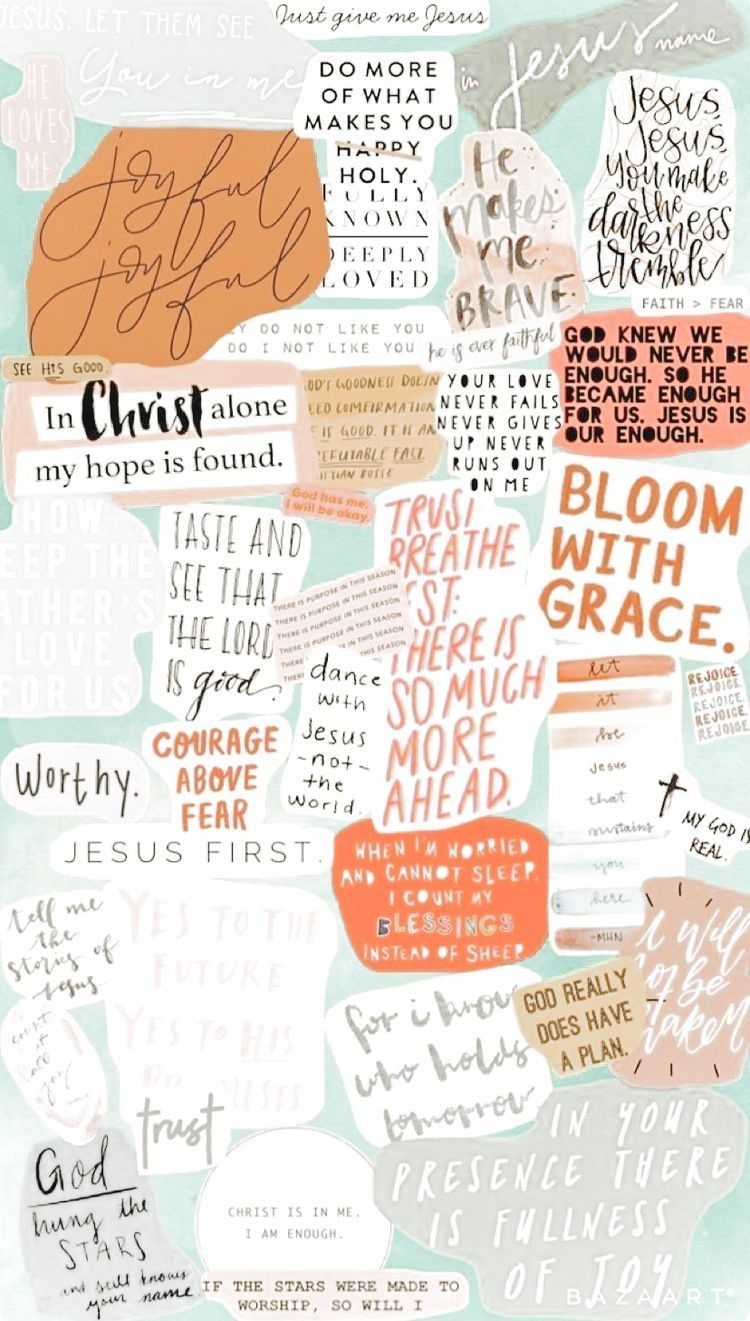 JESUS, LET THEM SEE
You in me
Just give me Jesus
in Jesus name
HE
LOVES
ME
DO MORE
OF WHAT
MAKES YOU
HAPPY
HOLY.
FULLY
KNOWN
DEEPLY
LOVED
joyful
joyful
He
makes
me
BRAVE.
Jesus,
Jesus,
you make
the
darkness
tremble
FAITH > FEAR
DO NOT LIKE YOU
DO I NOT LIKE YOU
he is ever faithful
GOD KNEW WE
WOULD NEVER BE
ENOUGH. SO HE
BECAME ENOUGH
FOR US. JESUS IS
OUR ENOUGH.
SEE HIS GOOD.
In Christ alone
my hope is found.
OD'S GOODNESS DOESN
ED COMFIRMATION
IS GOOD. IT IS AN
EFUTABLE FACT
YOUR LOVE
NEVER FAILS
NEVER GIVES
UP NEVER
RUNS OUT
ON ME
God has me,
I will be okay.
BLOOM
WITH
GRACE.
HOW
EEP THE
ATHER'S
LOVE
FOR US
TASTE AND
SEE THAT
THE LORD
IS good.
THERE IS PURPOSE IN THIS SEASON
THERE IS PURPOSE IN THIS SEASON
THERE IS PURPOSE IN THIS SEASON
THERE IS PURPOSE IN THIS SEASON
THERE IS PURPOSE IN THIS SEASON
THERE
TRUST
BREATHE
EST:
THERE IS
SO MUCH
MORE
AHEAD.
dance
with
Jesus
-not-
the
world.
let
it
be
Jesus
that
sustains
you
here
-MHN
REJOICE.
REJOICE.
REJOICE.
REJOICE.
REJOICE
Worthy.
COURAGE
ABOVE
FEAR
MY GOD IS
REAL.
JESUS FIRST.
WHEN I'M WORRIED
AND CANNOT SLEEP.
I COUNT MY
BLESSINGS
INSTEAD OF SHEEP
tell me
the
stories of
Jesus
YES TO THE
FUTURE
YES TO HIS
PROMISES
I will
not be
shaken
count
it
all
joy
for i know
who holds
tomorrow
GOD REALLY
DOES HAVE
A PLAN.
trust
God
hung the
STARS
and still knows
your name
CHRIST IS IN ME.
I AM ENOUGH.
IN YOUR
PRESENCE THERE
IS FULLNESS
OF JOY
IF THE STARS WERE MADE TO
WORSHIP, SO WILL I
BAZAART